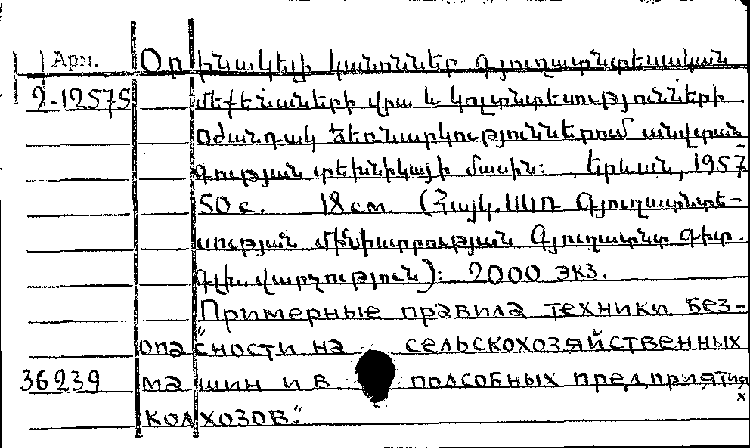 Арм. Օրինակելի կանոններ գյուղատնտեսական
2-12575 մեքենաների վրա և կոլտնտեսությունների
օժանդակ ձեռնարկություններում անվտան
գության տեխնիկայի մասին: Երևան, 1957
50 с. 18 см. (Հայկ. ՍՍՌ Գյուղատնտե-
սության մինիստրության Գյուղատնտ գիտ.
գլխ. վարչություն): 2000 экз.
Примерные правила техники без-
опасности на сельскохозяйственных
36239 машин и в подсобных предприятия
х
колхозов."